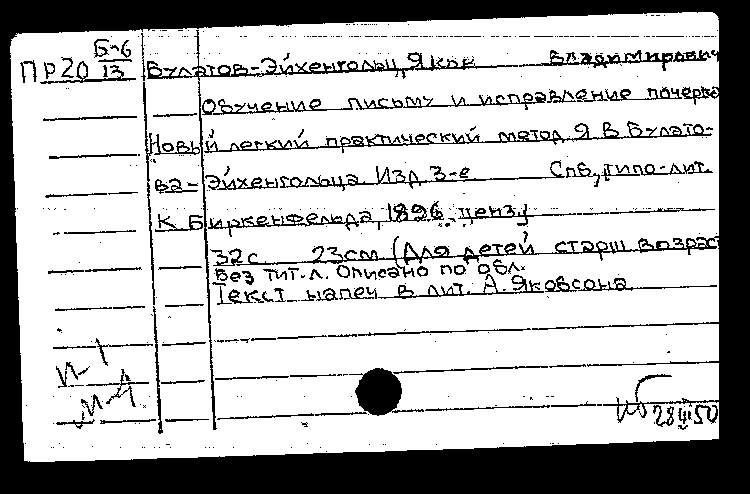 ПР20 Б-6/13 Булатов-Эйхенгольц, Яков Владимирович
Обучение письму и исправление почерка
Новый легкий практический метод Я В Булато-
ва-Эйхенгольца Изд 3-е Спб, типо-лит.
К Биркенфельда, 1896 ценз.
32с 23см (Для детей старш возраст
Без тит. л. Описано по обл.
Текст напеч в лит. А. Якобсона
И-1
М-4
28 III 50